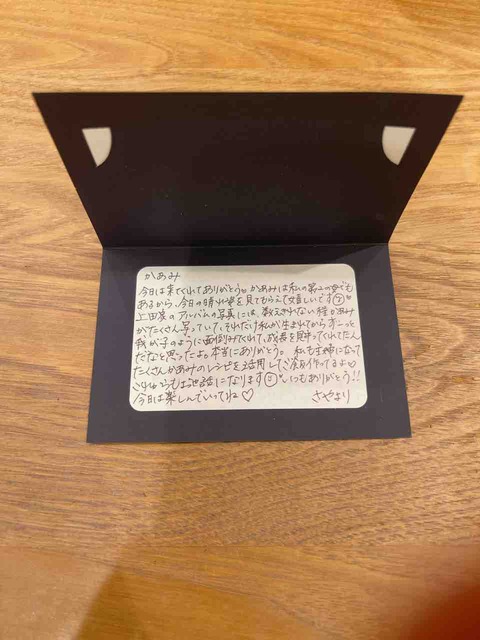 かあみ
今日は来てくれてありがとう。かあみは私の第二の母でも
あるから、今日の晴れ姿を見てもらえて嬉しいです
上田家のアルバムの写真には、数えきれない程かあみ
がたくさん写っていて、それだけ私が生まれてからずーっと
我が子のように面倒みてくれて、成長を見守ってくれてたん
だなと思ったよ。本当にありがとう。私も主婦になって
たくさんかあみのレシピを活用してご飯作ってるよ
これからもお世話になります いつもありがとう!!
今日は楽しんでいってね♡ さやより